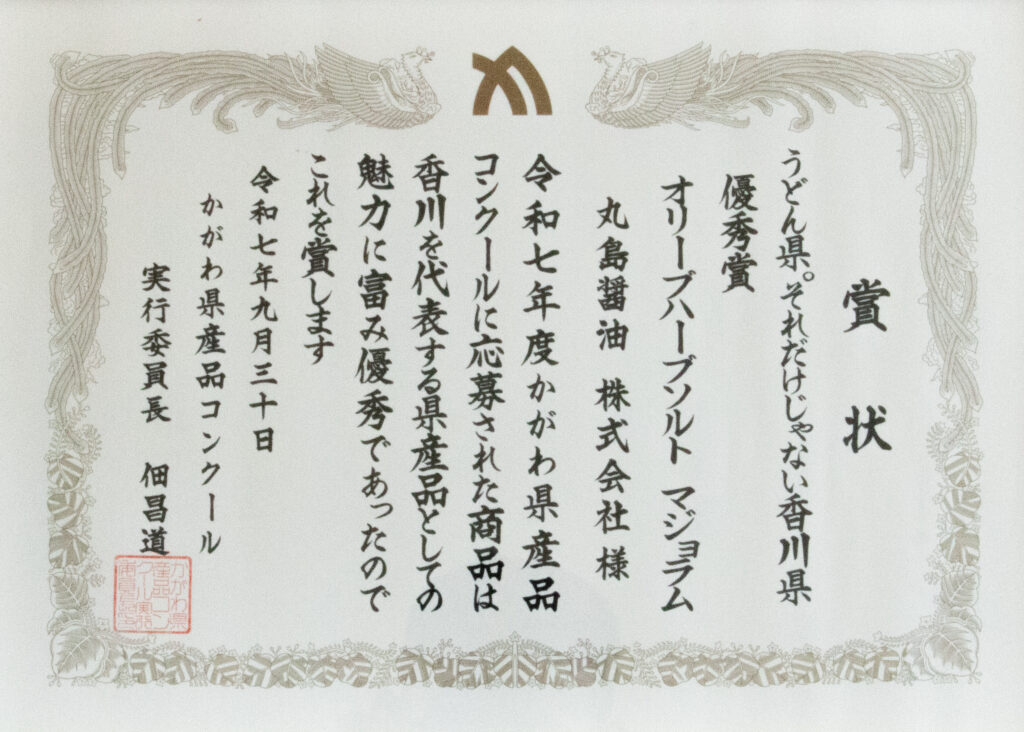 賞状
うどん県。それだけじゃない香川県
優秀賞
オリーブハーブソルト マジョラム
丸島醤油 株式会社 様
令和七年度かがわ県産品
コンクールに応募された商品は
香川を代表する県産品としての
魅力に富み優秀であったので
これを賞します
令和七年九月三十日
かがわ県産品コンクール
実行委員長 佃昌道